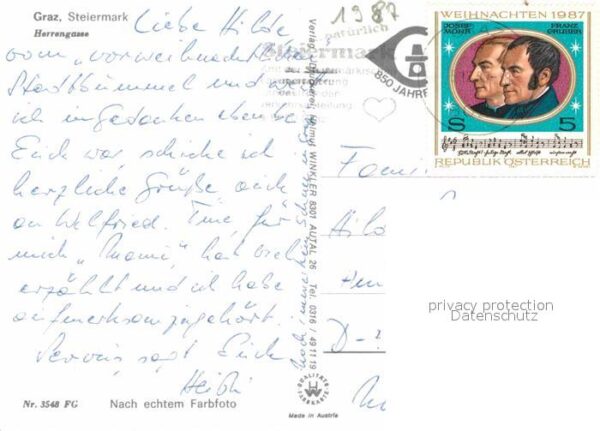 Graz, Steiermark
Herrengasse
Liebe Hilde
vom "vorweihnachtlichen"
Stadtbummel und weil
ich in Gedanken eben bei
Euch war, schicke ich
herzliche Grüße auch
an Welfried.
mich "Mami" hat viel
erzählt und ich habe
aufmerksam zugehört.
Servus sagt Euch
Heidi
Nr. 3548 FG
Nach echtem Farbfoto
1987
natürlich
Steiermark
850 JAHRE
Verlag
Helmut WINKLER 8301 AUTAL 26 Tel. 0316 / 49 11 19
QUALITÄTS
FARBKARTE
Made in Austria
WEIHNACHTEN 1987
JOSEF MOHR
FRANZ GRUBER
S 5
REPUBLIK ÖSTERREICH
Fam
Hild
D-
privacy protection
Datenschutz